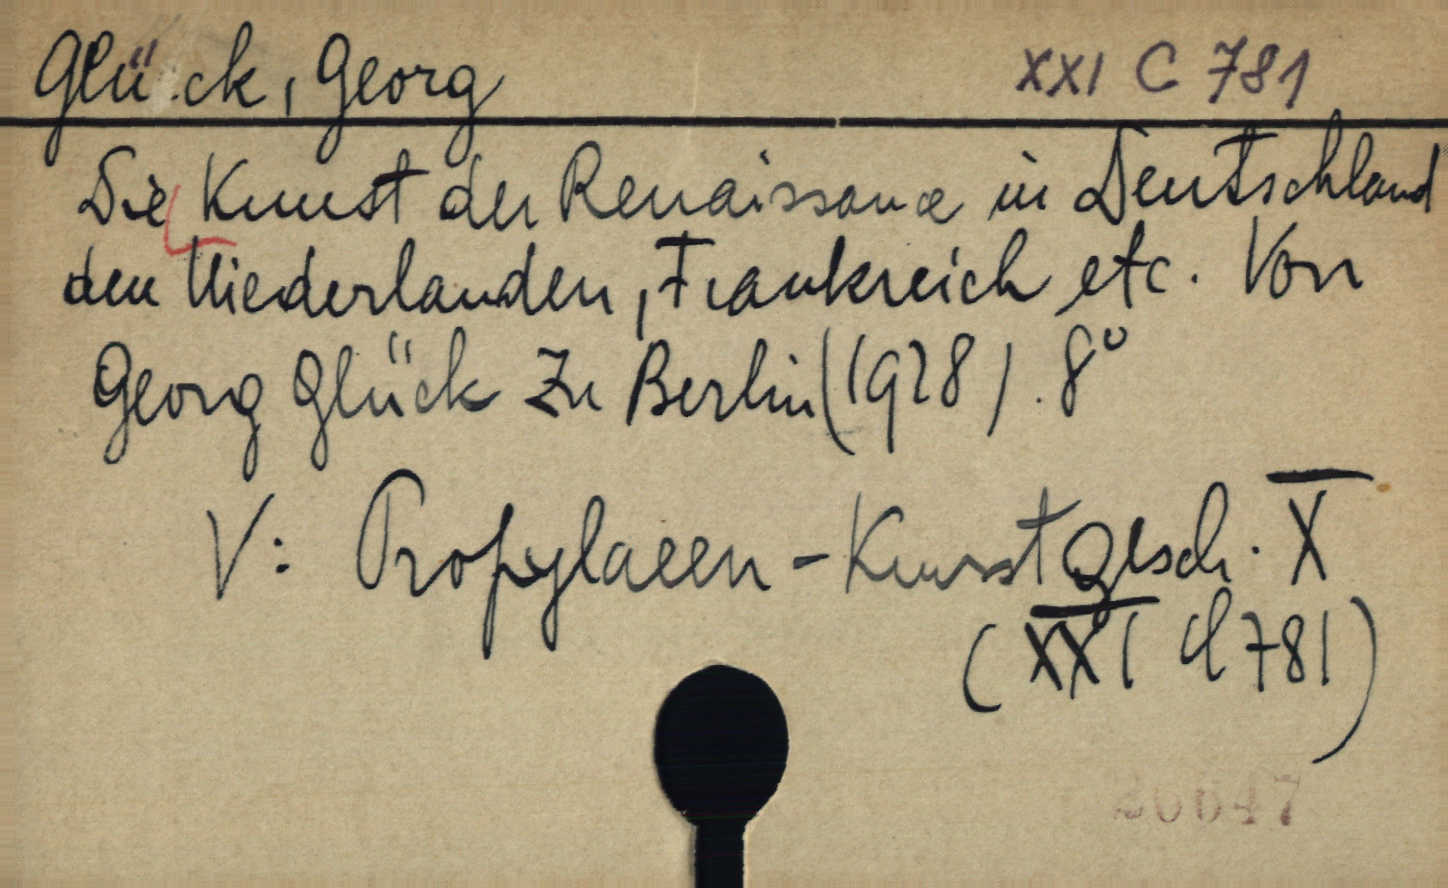 Glück, Georg XXI C 781
Die Kunst der Renaissance in Deutschland
den Niederlanden, Frankreich etc. Von
Georg Glück zu Berlin (1928). 8°
V: Propylaeen-Kunstgesch. X
(XXI C 781)